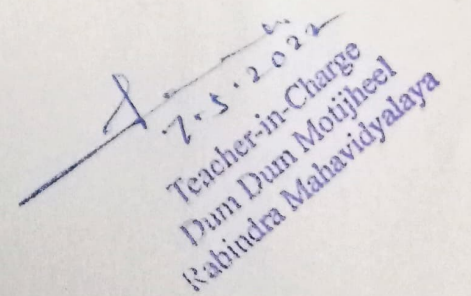 7.5.2022
Teacher-in-Charge
Dum Dum Motijheel
Rabindra Mahavidyalaya